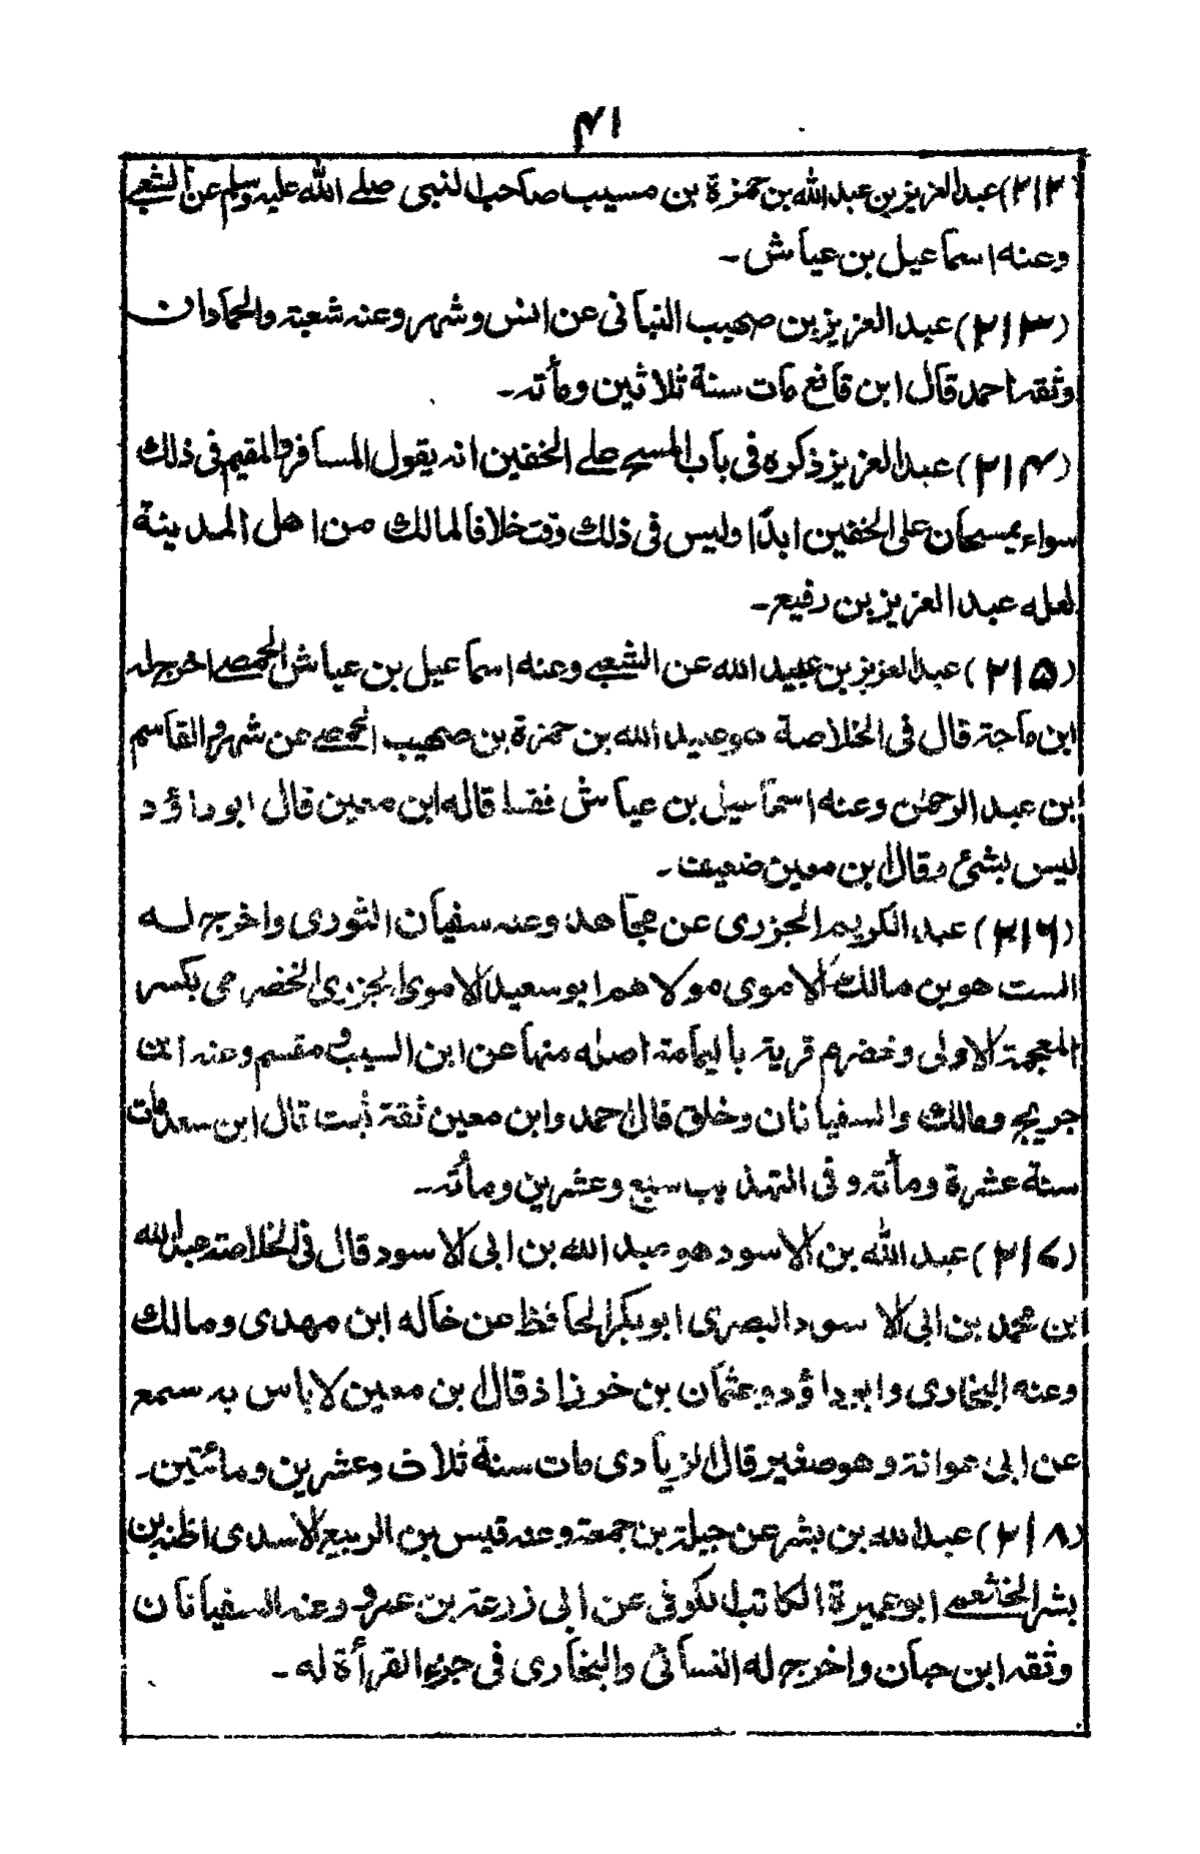 ۴۱
(۲۱۲) عبد العزيز بن عبد الله بن حمزة بن مسيب صاحب النبى صلے الله عليه وسلم عن الشعبے
وعنه اسماعيل بن عياش۔
(۲۱۳) عبد العزيز بن صهيب البنانى عن انس وشهر وعنه شعبة والحمادان
وثقه احمد قال ابن قانع مات سنة ثلاثين ومأته۔
(۲۱۴) عبد العزيز ذكره فى باب المسح علے الخفين انه يقول المسافر والمقيم فى ذلك
سواء يمسحان على الخفين ابدًا وليس فى ذلك وقت خلافا لمالك من اهل المدينة
لعله عبد العزيز بن رفيع۔
(۲۱۵) عبد العزيز بن عبيد الله عن الشعبے وعنه اسماعيل بن عياش الحمصے اخرج له
ابن ماجة قال فى الخلاصة هو عبيد الله بن حمزة بن صهيب الحمصے عن شهر والقاسم
ابن عبد الرحمٰن وعنه اسماعيل بن عياش فقط قاله ابن معين قال ابو داؤد
ليس بشئ وقال ابن معين ضعيف۔
(۲۱۶) عبد الكريم الجزرى عن مجاهد وعنه سفيان الثورى واخرج له
الست هو بن مالك الاموى مولاهم ابو سعيد الاموى الجزرى الخضرمى بكسر
المعجمة الاولى وخضرم قرية باليمامة اصله منها عن ابن المسيب و مقسم وعنه ابن
جريج ومالك والسفيانان وخلق قال احمد وابن معين ثقة ثبت قال ابن سعد مات
سنة عشرة ومأته وفى التهذيب سبع وعشرين ومأته۔
(۲۱۷) عبد الله بن الاسود هو عبد الله بن ابى الاسود قال فى الخلاصة عبد الله
ابن محمد بن ابى الاسود البصرى ابو بكر الحافظ عن خاله ابن مهدى ومالك
وعنه البخارى وابو داؤد وعثمان بن خرزاذ قال ابن معين لا باس به سمع
عن ابى عوانة وهو صغير قال الزيادى مات سنة ثلاث وعشرين ومائتين۔
(۲۱۸) عبد الله بن بشر عن جبلة بن جمعة وعنه قيس بن الربيع الاسدى اظنه بن
بشر الخثعمے ابو عميرة الكاتب الكوفى عن ابى زرعة بن عمرو وعنه السفيانان
وثقه ابن حبان واخرج له النسائى والبخارى فى جزء القرأة له۔